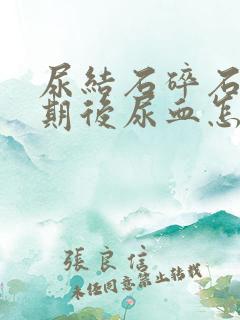 尿結石碎石
期後尿血怎
張良信
未任同意禁止转载